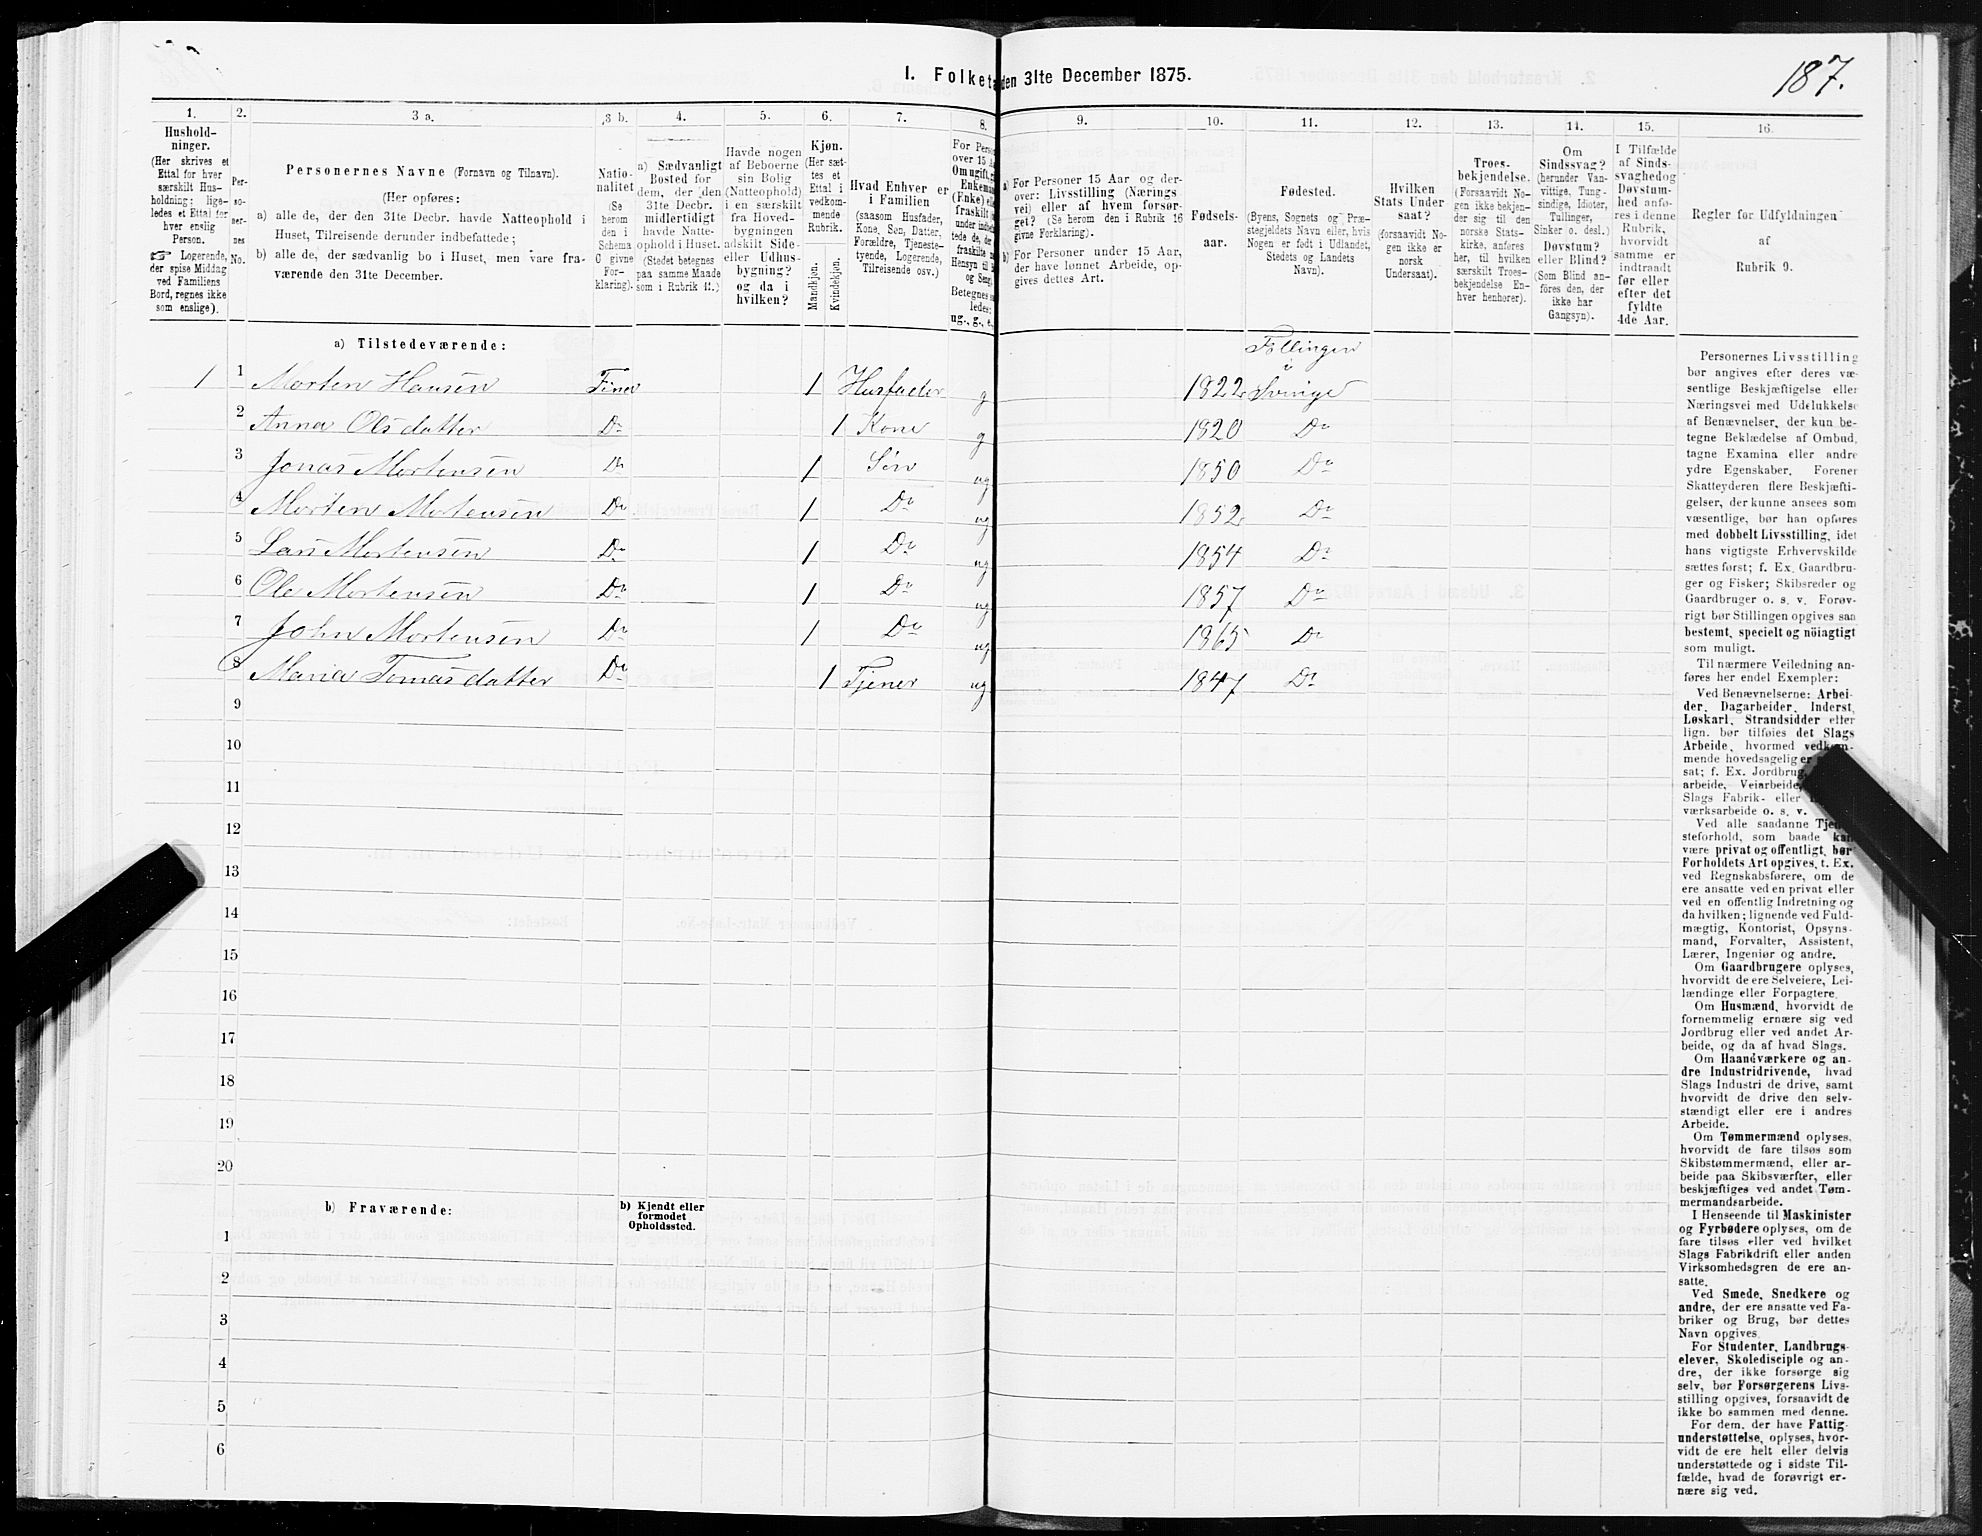 I. Folketæ den 31te December 1875.
187.
1.
Hushold-
ninger.
(Her skrives et
Ettal for hver
særskilt Hus-
holdning; lige-
ledes et Ettal for
hver enslig
Person.
☞ Logerende,
der spise Middag
ved Familiens
Bord, regnes ikke
som enslige).
2.
Per-
so-
ner-
nes
No.
3 a.
Personernes Navne (Fornavn og Tilnavn).
(Her opføres:
a) alle de, der den 31te Decbr. havde Natteophold i
Huset, Tilreisende derunder indbefattede;
b) alle de, der sædvanlig bo i Huset, men vare fra-
værende den 31te December.
3 b.
Natio-
nalitet
(Se
herom
den i
Schema
C givne
For-
klaring).
4.
a) Sædvanligt
Bosted for
dem, der den
31te Decbr.
midlertidigt
havde Natte-
ophold i Huset.
(Stedet betegnes
paa samme Maade
som i Rubrik 11.)
5.
Havde nogen
af Beboerne
sin Bolig
(Natteophold)
i en særskilt
fra Hoved-
bygningen
adskilt Side-
eller Udhus-
bygning?
og da i
hvilken?
6.
Kjøn.
(Her sæt-
tes et
Ettal i
vedkom-
mende
Rubrik.
Mandkjøn.
Kvindekjøn.
7.
Hvad Enhver er
i Familien
(saasom Husfader,
Kone, Søn, Datter,
Forældre, Tjeneste-
tyende, Logerende,
Tilreisende osv.)
8.
For Perso
over 15 Aa
Om ugift, g
Enkema
(Enke) ell
fraskilt
9.
a) For Personer 15 Aar og der-
over: Livsstilling (Nærings
vei) eller af hvem forsør-
get? (Se herom den i Rubrik 16
givne Forklaring).
b) For Personer under 15 Aar,
der have lønnet Arbeide, op-
gives dettes Art.
10.
Fødsels-
aar.
11.
Fødested.
(Byens, Sognets og Præ-
stegjeldets Navn eller, hvis
Nogen er født i Udlandet,
Stedets og Landets
Navn).
12.
Hvilken
Stats Under
saat?
(forsaavidt No-
gen ikke er
norsk
Undersaat).
13.
Troes-
bekjendelse.
(Forsaavidt No-
gen ikke bekjen-
der sig til den
norske Stats-
kirke, anføres
her, til hvilken
særskilt Troes-
bekjendelse En-
hver henhorer).
14.
Om
Sindssvag?
(herunder Van-
vittige, Tung-
sindige, Idioter,
Tullinger,
Sinker o. desl.)
Døvstum?
eller Blind?
(Som Blind an-
føres den, der
ikke har
Gangsyn).
15.
I Tilfælde
af Sinds-
svaghed og
Døvstum-
hed anfø-
res i denne
Rubrik,
hvorvidt
samme er
indtraadt
før eller
efter det
fyldte
4de Aar.
16.
Regler for Udfyldningen
af
Rubrik 9.
a) Tilstedeværende:
1 1 Morten Hansen Finer 1 Husfader g 1822 Svinge
2 Anna Olsdatter Do 1 Kone g 1820 Do
3 Jonas Mortensen Do 1 Søn ug 1850 Do
4 Morten Mortensen Do 1 Do ug 1852 Do
5 Lars Mortensen Do 1 Do ug 1854 Do
6 Ole Mortensen Do 1 Do ug 1857 Do
7 John Mortensen Do 1 Do ug 1865 Do
8 Maria Tomasdatter Do 1 Tjener ug 1847 Do
9
10
11
12
13
14
15
16
17
18
19
20
b) Fraværende:
b) Kjendt eller
formodet
Opholdssted.
1
2
3
4
5
6
Personernes Livsstilling
bør angives efter deres væ-
sentlige Beskjæftigelse eller
Næringsvei med Udelukkelse
af Benævnelser, der kun be-
tegne Beklædelse af Ombud,
tagne Examina eller andre
ydre Egenskaber. Forener
Skatteyderen flere Beskjæfti-
gelser, der kunne ansees som
væsentlige, bør han opføres
med dobbelt Livsstilling, idet
hans vigtigste Erhvervskilde
sættes først; f. Ex. Gaardbru-
ger og Fisker; Skibsreder og
Gaardbruger o. s. v. Forøv-
rigt bør Stillingen opgives saa
bestemt, specielt og nöiagtigt
som muligt.
Til nærmere Veiledning an-
føres her endel Exempler:
Ved Benævnelserne: Arbei-
der, Dagarbeider, Inderst,
Løskarl, Strandsidder eller
lign. bør tilføies det Slags
Arbeide, hvormed vedkom-
mende hovedsagelig er
sat; f. Ex. Jordbrug,
arbeide, Veiarbeide,
Slags Fabrik- eller
værksarbeide o. s. v.
Ved alle saadanne Tjene-
steforhold, som baade kan
være privat og offentligt, bør
Forholdets Art opgives, t. Ex.
ved Regnskabsførere, om de
ere ansatte ved en privat eller
ved en offentlig Indretning og
da hvilken; lignende ved Fuld-
mægtig, Kontorist, Opsyns-
mand, Forvalter, Assistent,
Lærer, Ingeniør og andre.
Om Gaardbrugere oplyses,
hvorvidt de ere Selveiere, Lei-
lændinge eller Forpagtere.
Om Husmænd, hvorvidt de
fornemmelig ernære sig ved
Jordbrug eller ved andet Ar-
beide, og da af hvad Slags.
Om Haandværkere og an-
dre Industridrivende, hvad
Slags Industri de drive, samt
hvorvidt de drive den selv-
stændigt eller ere i andres
Arbeide.
Om Tømmermænd oplyses,
hvorvidt de fare tilsøs som
Skibstømmermænd, eller ar-
beide paa Skibsværfter, eller
beskjæftiges ved andet Tøm-
mermandsarbeide.
I Henseende til Maskinister
og Fyrbødere oplyses, om de
fare tilsøs eller ved hvilket
Slags Fabrikdrift eller anden
Virksomhedsgren de ere an-
satte.
Ved Smede, Snedkere og
andre, der ere ansatte ved Fa-
briker og Brug, bør dettes
Navn opgives.
For Studenter, Landbrugs-
elever, Skoledisciple og an-
dre, der ikke forsørge sig
selv, bør Forsørgerens Livs-
stilling opgives, forsaavidt de
ikke bo sammen med denne.
For dem, der have Fattig-
understøttelse, oplyses, hvor-
vidt de ere helt eller delvis
understøttede og i sidste Til-
fælde, hvad de forøvrigt er-
nære sig ved.